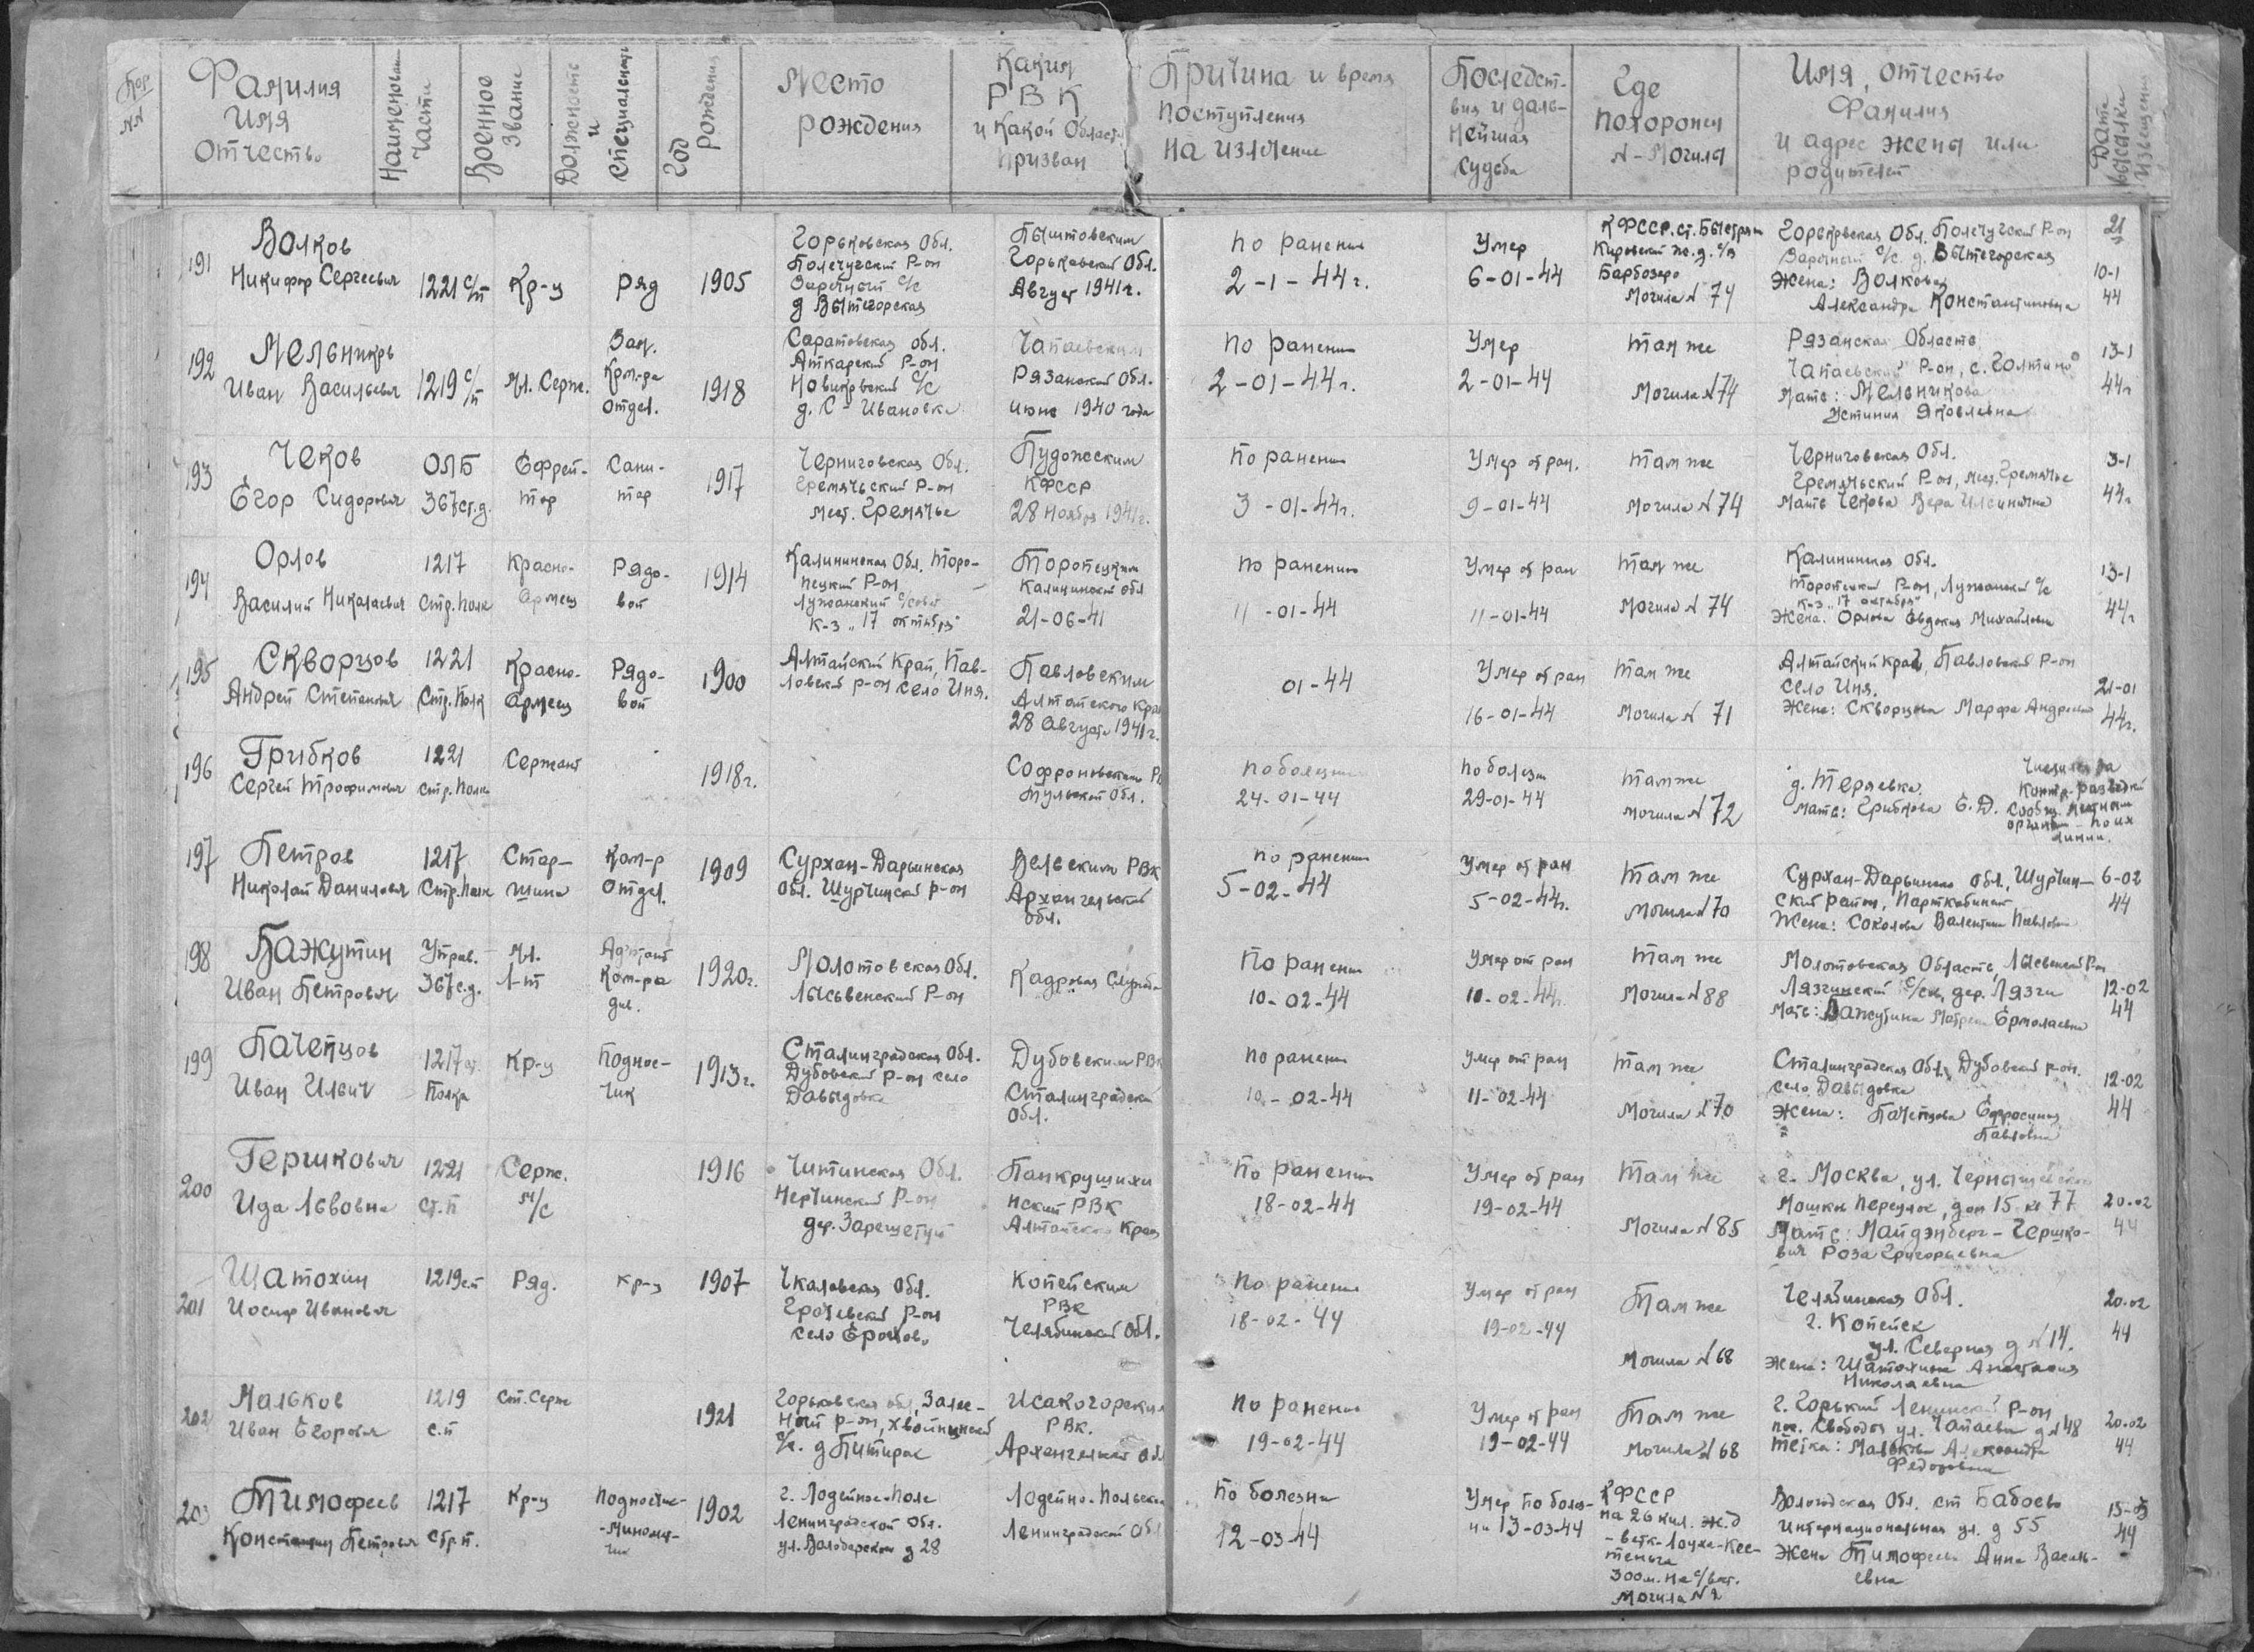 Пор NN
Фамилия
Имя
Отчество
Наименован
Части
Военное
Звание
Должность
и
Специальность
Год
рождения
Место
рождения
Каким
РВК
и Какой Област.
призван
Причина и время
поступления
на излечение
Последст-
вия и даль-
нейшая
судьба
Где
похоронен
N-Могила
Имя, отчество
Фамилия
и адрес жены или
родителей
Дата
высылки
Извещения
191
Волков
Никифор Сергеевич
1221 с/п
Кр-ц
ряд
1905
Горьковская Обл.
Р-он
с/с
д Вытегорская
Горьковской Обл.
Август 1941г.
по ранению
2-1-44г.
Умер
6-01-44
КФССР. ст.
Кировской
Могила N 74
Горьковская Обл. Р-он
с/с. д. Вытегорская
Жена: Волкова
Александра Константиновна
21
10-1
44
192
Мельников
Иван Васильевич
1219 с/п
Мл. Серж.
Зам.
Ком-ра
отдел.
1918
Саратовская обл.
Аткарский Р-он
Новиковский с/с
д. С-Ивановка
Чапаевским
Рязанской Обл.
июнь 1940 года
по ранению
2-01-44г.
Умер
2-01-44
там же
Могила N 74
Рязанская Область
Чапаевский Р-он, с.
Мать: Мельникова
Устиния Яковлевна
13-1
44г
193
Чеков
Егор Сидорович
ОЛБ
367 ст.д.
Ефрей-
тор
Сани-
тар
1917
Черниговская Обл.
Гремячьский Р-он
мест. Гремячье
Пудожским
КФССР
28 ноября 1941г.
По ранению
3-01-44г.
Умер от ран.
9-01-44
там же
Могила N 74
Черниговская Обл.
Гремячьский Р-он, мест. Гремячье
Мать Чекова Вера
3-1
44г
194
Орлов
Василий Николаевич
1217
Стр. Полк
Красно-
Армеец
Рядо-
вой
1914
Калининская Обл. Торо-
пецкий Р-он
Лужанский с/совет
к-з „17 октября"
Торопецким
Калининской обл
21-06-41
по ранению
11-01-44
Умер от ран
11-01-44
там же
Могила N 74
Калининская Обл.
Торопецкий Р-он, Лужанский с/с
к-з „17 октября"
Жена: Орлова Евдокия Михайловна
13-1
44г
195
Скворцов
Андрей Степанович
1221
Стр. Полк
Красно-
Армеец
Рядо-
вой
1900
Алтайский Край, Пав-
ловский р-он село Иня.
Павловским
Алтайского Края
28 Августа 1941г.
01-44
Умер от ран
16-01-44
там же
Могила N 71
Алтайский край, Павловский Р-он
село Иня.
Жена: Скворцова Марфа Андреевна
21-01
44г.
196
Грибков
Сергей Трофимович
1221
стр. Полк
Сержант
1918г.
Тульской Обл.
по болезни
24-01-44
по болезн
29-01-44
там же
могила N 72
д. Теряевка.
Мать: Грибкова Е. Д.
Числился за
Контр-разведкой
Сообщ. местным
органам по их
линии.
197
Петров
Николай Данилович
1217
Стр. Полк
Стар-
шина
Ком-р
отдел.
1909
Сурхан-Дарьинская
Обл. Шурчинский р-он
Вельским РВК
Архангельской
обл.
по ранению
5-02-44
Умер от ран
5-02-44г.
там же
Могила N 70
Сурхан-Дарьинская Обл., Шурчин-
ский район, Парткабинет
Жена: Соколова Валентина Павловна
6-02
44
198
Бажутин
Иван Петрович
Управ.
367 с.д.
Мл.
Л-т
Адъютант
Ком-ра
див.
1920г.
Молотовская Обл.
Лысьвенский Р-он
Кадровая Служба
По ранению
10-02-44
Умер от ран
10-02-44г.
там же
Могила N 88
Молотовская Область, Лысьвенский Р-он
Лязгинский с/сов, дер. Лязги
Мать: Бажутина Матрена Ермолаевна
12-02
44
199
Пачепцов
Иван Ильич
1217 ст.
Полка
Кр-ц
Поднос-
чик
1913г.
Сталинградская Обл.
Дубовский р-он село
Давыдовка
Дубовским РВК
Сталинградской
Обл.
по ранению
10-02-44
умер от ран
11-02-44
там же
Могила N 70
Сталинградская Обл. Дубовский р-он.
село Давыдовка
Жена: Пачепцова Ефросиния
Павловна
12-02
44
200
Гершкович
Ида Львовна
1221
ст.п
Серж.
м/с
1916
Читинская Обл.
Нерчинский Р-он
дер.
Панкрушихи
нский РВК
Алтайского Края
По ранению
18-02-44
Умер от ран
19-02-44
там же
Могила N 85
г. Москва, ул.
переулок, дом 15 кв 77
Мать: Майдэнберг-Гершко-
вич Роза Григорьевна
20-02
44
201
Шатохин
Иосиф Иванович
1219 сп
Ряд.
кр-ц
1907
Чкаловская Обл.
Грачевский Р-он
село
Копейским
РВК
Челябинской Обл.
по ранению
18-02-44
Умер от ран
19-02-44
Там же
Могила N 68
Челябинская Обл.
г. Копейск
ул. Северная д N 14.
Жена: Шатохина Анастасия
Николаевна
20-02
44
202
Мальков
Иван Егорович
1219
с.п
Ст. Серж
1921
Горьковская обл,
р-он,
с/с. д
Исакогорским
РВК.
Архангельской Обл
по ранению
19-02-44
Умер от ран
19-02-44
Там же
Могила N 68
г. Горький Ленинский Р-он
пос. Свобода ул. Чапаева д N 48
тетка: Малькова Александра
Федоровна
20-02
44
203
Тимофеев
Константин Петрович
1217
Стр. п.
Кр-ц
Подносчик-
-Миномет-
чик
1902
г. Лодейное-Поле
Ленинградской Обл.
ул. Володарского д 28
Лодейно-Польским
Ленинградской Обл
По болезни
12-03-44
Умер по болез-
ни 13-03-44
КФССР
на 26 кил. ж.д
-ветк-Лоухи-Кес-
теньга
300м. на с/вост.
Могила N 2
Вологодская Обл. ст Бабаево
Интернациональная ул. д 55
Жена Тимофеева Анна Василь-
евна
15-03
44